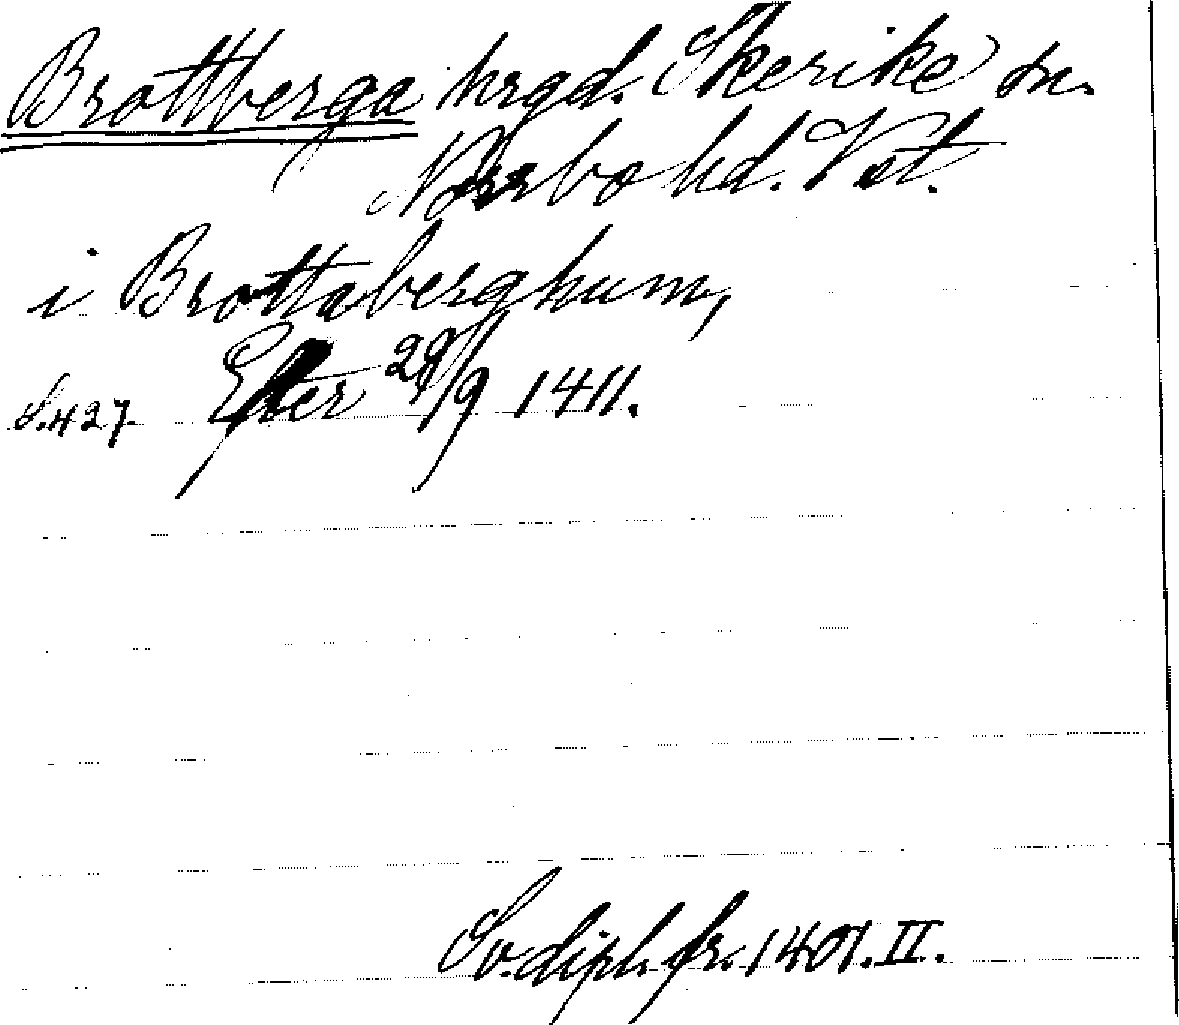 Brottberga hrgd. Skerike sn.
Norrbo hd. Vst.
i Brottaberghum,
S. 427. Efter 29/9 1411.
Sv. dipl. fr. 1401. II.